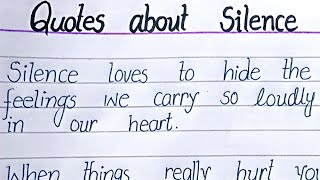 Quotes about Silence
Silence loves to hide the
feelings we carry so loudly
in our heart.
When things really hurt you